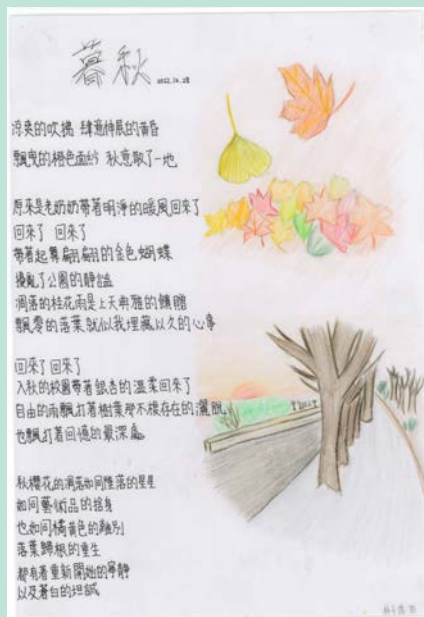 暮秋
2022.10.28
涼爽的吹拂 肆意伸展的黃昏
飄曳的橙色面紗 秋意散了一地
原來是老奶奶帶著明淨的暖風回來了
回來了 回來了
帶著起舞翩翩的金色蝴蝶
擾亂了公園的靜謐
凋落的桂花雨是上天典雅的饋贈
飄零的落葉就似我埋藏以久的心事
回來了 回來了
入秋的校園帶著銀杏的溫柔回來了
自由的雨飄打著樹葉那不復存在的灑脫
也飄打著回憶的最深處
秋櫻花的凋落如同墜落的星星
如同藝術品的捨身
也如同橘黃色的離別
落葉歸根的重生
都有著重新開始的寧靜
以及蒼白的坦誠